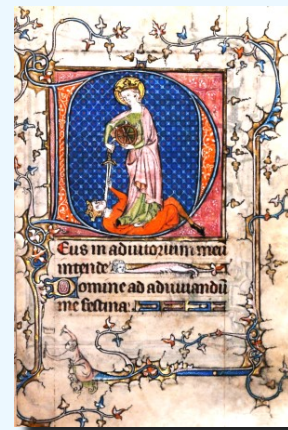 Eus in adiutorium meu
intende
Domine ad adiuuandu
me festina